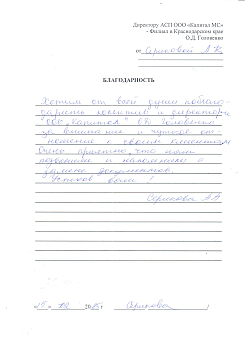 Директору АСП ООО «Капитал МС»
- Филиал в Краснодарском крае
О.Д. Головенко
от Сериковой А.А.
БЛАГОДАРНОСТЬ
Хотим от всей души поблаго-
дарить коллектив и директора
"ООО капитал" О.Д. Головенко
за внимание и чуткое от-
ношение к своим клиентам
Очень приятно, что нам
позвонили и напомнили о
замене документов.
Успехов вам!
Серикова А.А